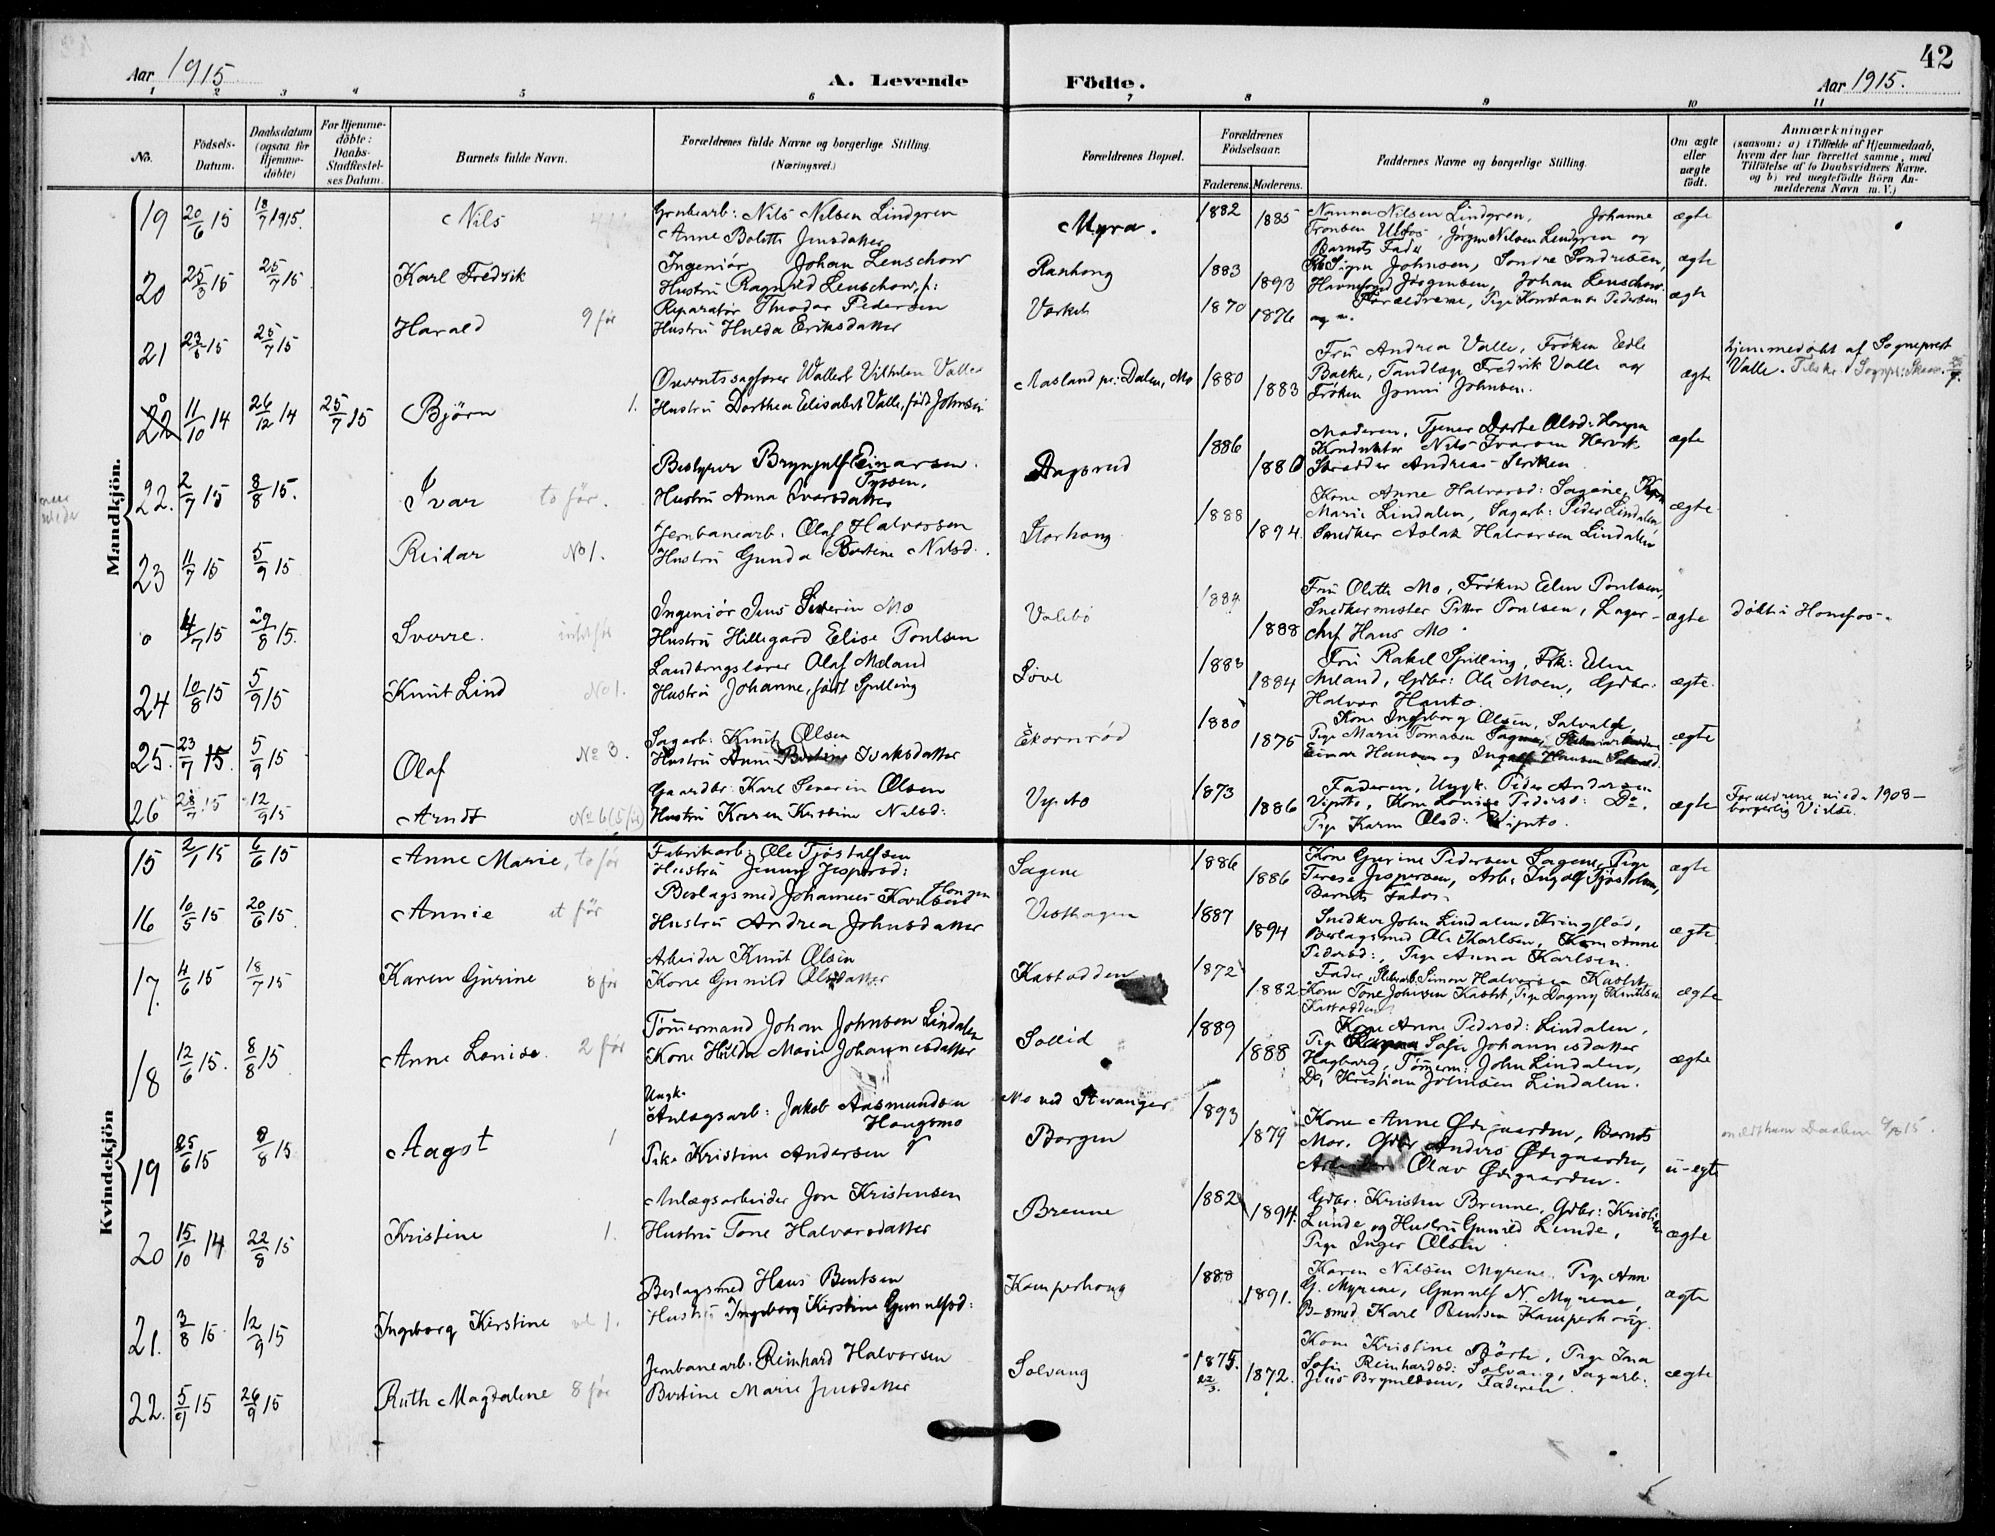 42
Aar 1915
A. Levende Födte.
Aar 1915.
1 2 3 4 5 6 7 8 9 10 11
No.
Födsels-Datum.
Daabsdatum (ogsaa for Hjemme-döbte)
For Hjemme-döbte: Daabs-Stadfæstel-ses Datum.
Barnets fulde Navn.
Forældrenes fulde Navne og borgerlige Stilling. (Næringsvei.)
Forældrenes Bopæl.
Forældrenes Födselsaar.
Faderens. Moderens.
Faddernes Navne og borgerlige Stilling.
Om ægte eller uægte født.
Anmærkninger
(saasom: a) i Tilfælde af Hjemmedaab,
hvem der har forrettet samme, med
Tilföielse af to Daabsvidners Navne.
og b) ved uægtefödte Börn An-
melderens Navn m. V.)
Mandkjön.
19 20/6 15 18/7 1915. Nils
Grubearb: Nils Nilsen Lindgren
Anne Bolette Jensdatter
Myra. 1882 1885
Nanna Nilsen Lindgren, Johanne
Tronsen Ulefos, Jørgen Nilsen Lindgren og
Barnets Fader
ægte
20 25/3 15 25/7 15 Karl Fredrik
Ingeniör Johan Lenschow
Hustru Ragnhild Lenschow, f:
Ranhoug 1883 1893
Signe Johnsen, Sondre Sondresen,
Jørgensen, Johan Lenschow.
ægte
21 23/5 15 25/7 15 Harald 9 för
Reparatör Theodor Pedersen
Hustru Hulda Eriksdatter
Værket 1870 1876
Forældrene, Pige Konstanse Pedersen
ægte
22 11/10 14 26/12 14 25/7 15 Björn 1.
Overretssagfører Wallert Vilhelm Valle
Hustru Dorthea Elisabet Valle, född Johnsen
Aasland pr: Dalen, Mo 1880 1883
Fru Andrea Valle, Fröken Edle
Bakke, Tandlæge Fredrik Valle og
Fröken Jenni Johnsen.
ægte
hjemmedöbt af Sogneprest
Valle.
22. 2/7 15 8/8 15. Ivar to för.
Bestyrer Brynjulf Einarsen
Tyssen,
Hustru Anna Ivarsdatter
Dagsrud 1886 1880
Moderen, Tjener Dorte Olsd:
Konduktör Nils Ivarsen
Skrædder Andreas
ægte
23 11/7 15 5/9 15 Reidar No 1.
Jernbanearb. Olaf Halvorsen
Hustru Gunda Bertine Nilsd.
Storhoug 1888 1894.
Kone Anne Halvorsd: Sagene,
Marie Lindalen, Sagarb: Peder Lindalen
Snedker Aslak Halvorsen Lindalen
ægte
0 4/7 15 29/8 15. Sverre. intet för
Ingeniör Jens Severin Mo
Hustru Hillegard Elise Poulsen
Valebö 1884 1888
Fru Olette Mo, Fröken Elen Poulsen,
Snedkermester Peter Poulsen, Lager-
chef Hans Mo.
ægte
döbt i Honefos.
24 10/8 15 5/9 15 Knut Lind No 1.
Landbrugslærer Olaf Meland
Hustru Johanne, född Spilling
Söve 1883 1884
Fru Rakel Spilling, Frk: Elen
Meland, Gdbr: Ole Moen, Gdbr:
Halvor Hanto
ægte.
25. 23/7 15. 5/9 15 Olaf No 3.
Sagarb: Knut Olsen
Hustru Anne Bertine Isaksdatter
Ekornröd 1880 1875
Kone Ingeborg Olsen, Salvald,
Pige Marie Tomasen
Einar Hansen og Ingolf Hansen
ægte
26 28/7 15 12/9 15 Arndt No 6 (5 för)
Gaardbr: Karl Severin Olsen
Hustru Karen Kristine Nilsd:
Vipto 1873 1886
Faderen, Ungk. Peder Andersen
Vipto, Kone Lovise Pedersd: Do.
Pige Karen Olsd: Vipto.
ægte
Forældrene viede 1908 –
borgerlig Vielse.
Kvindekjön
15 2/1 15 6/6 15 Anne Marie, to för
Fabrikarb: Ole Tjöstolfsen
Hustru Jenny Jespersd:
Sagene 1886 1886
Kone Gurine Pedersen Sagene, Pige
Terese Jespersen, Arb: Ingolf Tjöstolsen,
Barnets Fader
ægte
16 10/5 15 20/6 15. Annie et för
Beslagsmed Johannes Karlsen
Haugen
Hustru Andrea Johnsdatter
Vesthagen 1887 1894
Snedker John Lindalen,
Beslagsmed Ole Karlsen, Kone Anne
Pedersd:, Pige Anna Karlsen.
ægte
17. 4/6 15 18/7 15 Karen Gurine 8 för
Arbeider Knut Olsen
Kone Gunild Olsdatter
Kastodden 1872 1882
Fader, Simon Halvorsen
Kone Tone Johnsen Kastet, Pige Dagny Knutsen
Kastodden
ægte
18 12/6 15. 8/8 15 Anne Lovise. 2 för
Tömmermand Johan Johnsen Lindalen
Kone Hulda Marie Johannesdatter
Sollid 1889 1888
Kone Anne Pedersd: Lindalen,
Pige Sofie Johannesdatter
Hagberg, Tömmerm: John Lindalen,
Do, Kristian Johnsen Lindalen.
ægte
19 25/6 15 8/8 15 Aagot 1
Ungk.
Anlægsarb: Jakob Aasmundsen
Haugsmo
Pike Kristine Andersen
Mo ved Stavanger
Borgen 1893 1879
Kone Anne Ödegaarden, Barnets
Mor, Gdbr Anders Ödegaarden,
Arbeider Olav Ödegaarden.
u-egte
20 15/10 14 22/8 15 Kristine 1.
Anlægsarbeider Jon Kristensen
Hustru Tone Halvorsdatter
Brenne 1882 1894.
Gdbr. Kristen Brenne, Gdbr: Kristian
Lunde og Hustru Gunild Lunde,
Pige Inger Olsen
ægte
21. 3/8 15 12/9 15 Ingeborg Kirstine 1.
Beslagsmed Hans Bentsen
Hustru Ingeborg Kirstine Gunulfsd:
Kamperhoug 1888 1891.
Karen Nilsen Myrene, Pige Anne
G. Myrene, Gunulf N. Myrene,
B-smed Karl Bentsen Kamperhoug.
ægte
22. 5/9 15 26/9 15 Ruth Magdalene 8 för
Jernbanearb. Reinhard Halvorsen
Bertine Marie Jensdatter
Solvang 1875. 22/3. 1872.
Kone Kristine Börte, Pige Ina
Sofie Reinhardsd: Solvang, Sagarb:
Jens Brynildsen, Faderen.
ægte